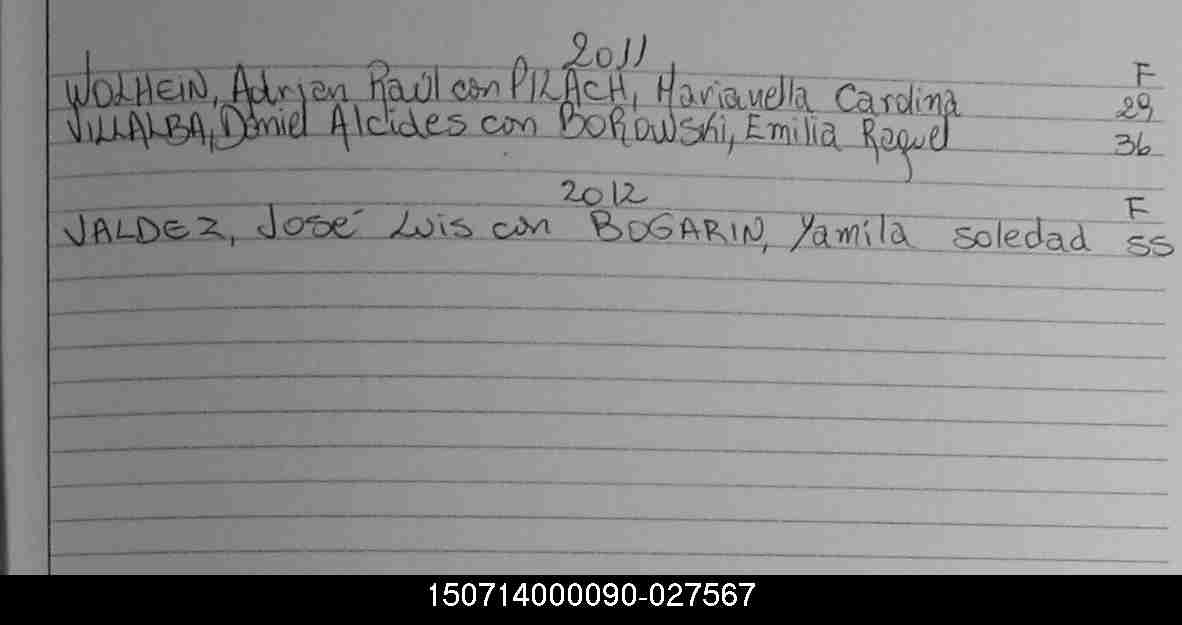 2011
F
WOLHEIN, Adrian Raúl con PIRACH, Marianella Carolina 29
VILLALBA, Daniel Alcides con BOROWSKI, Emilia Raquel 36
2012
F
VALDEZ, José Luis con BOGARIN, Yamila Soledad 55
150714000090-027567